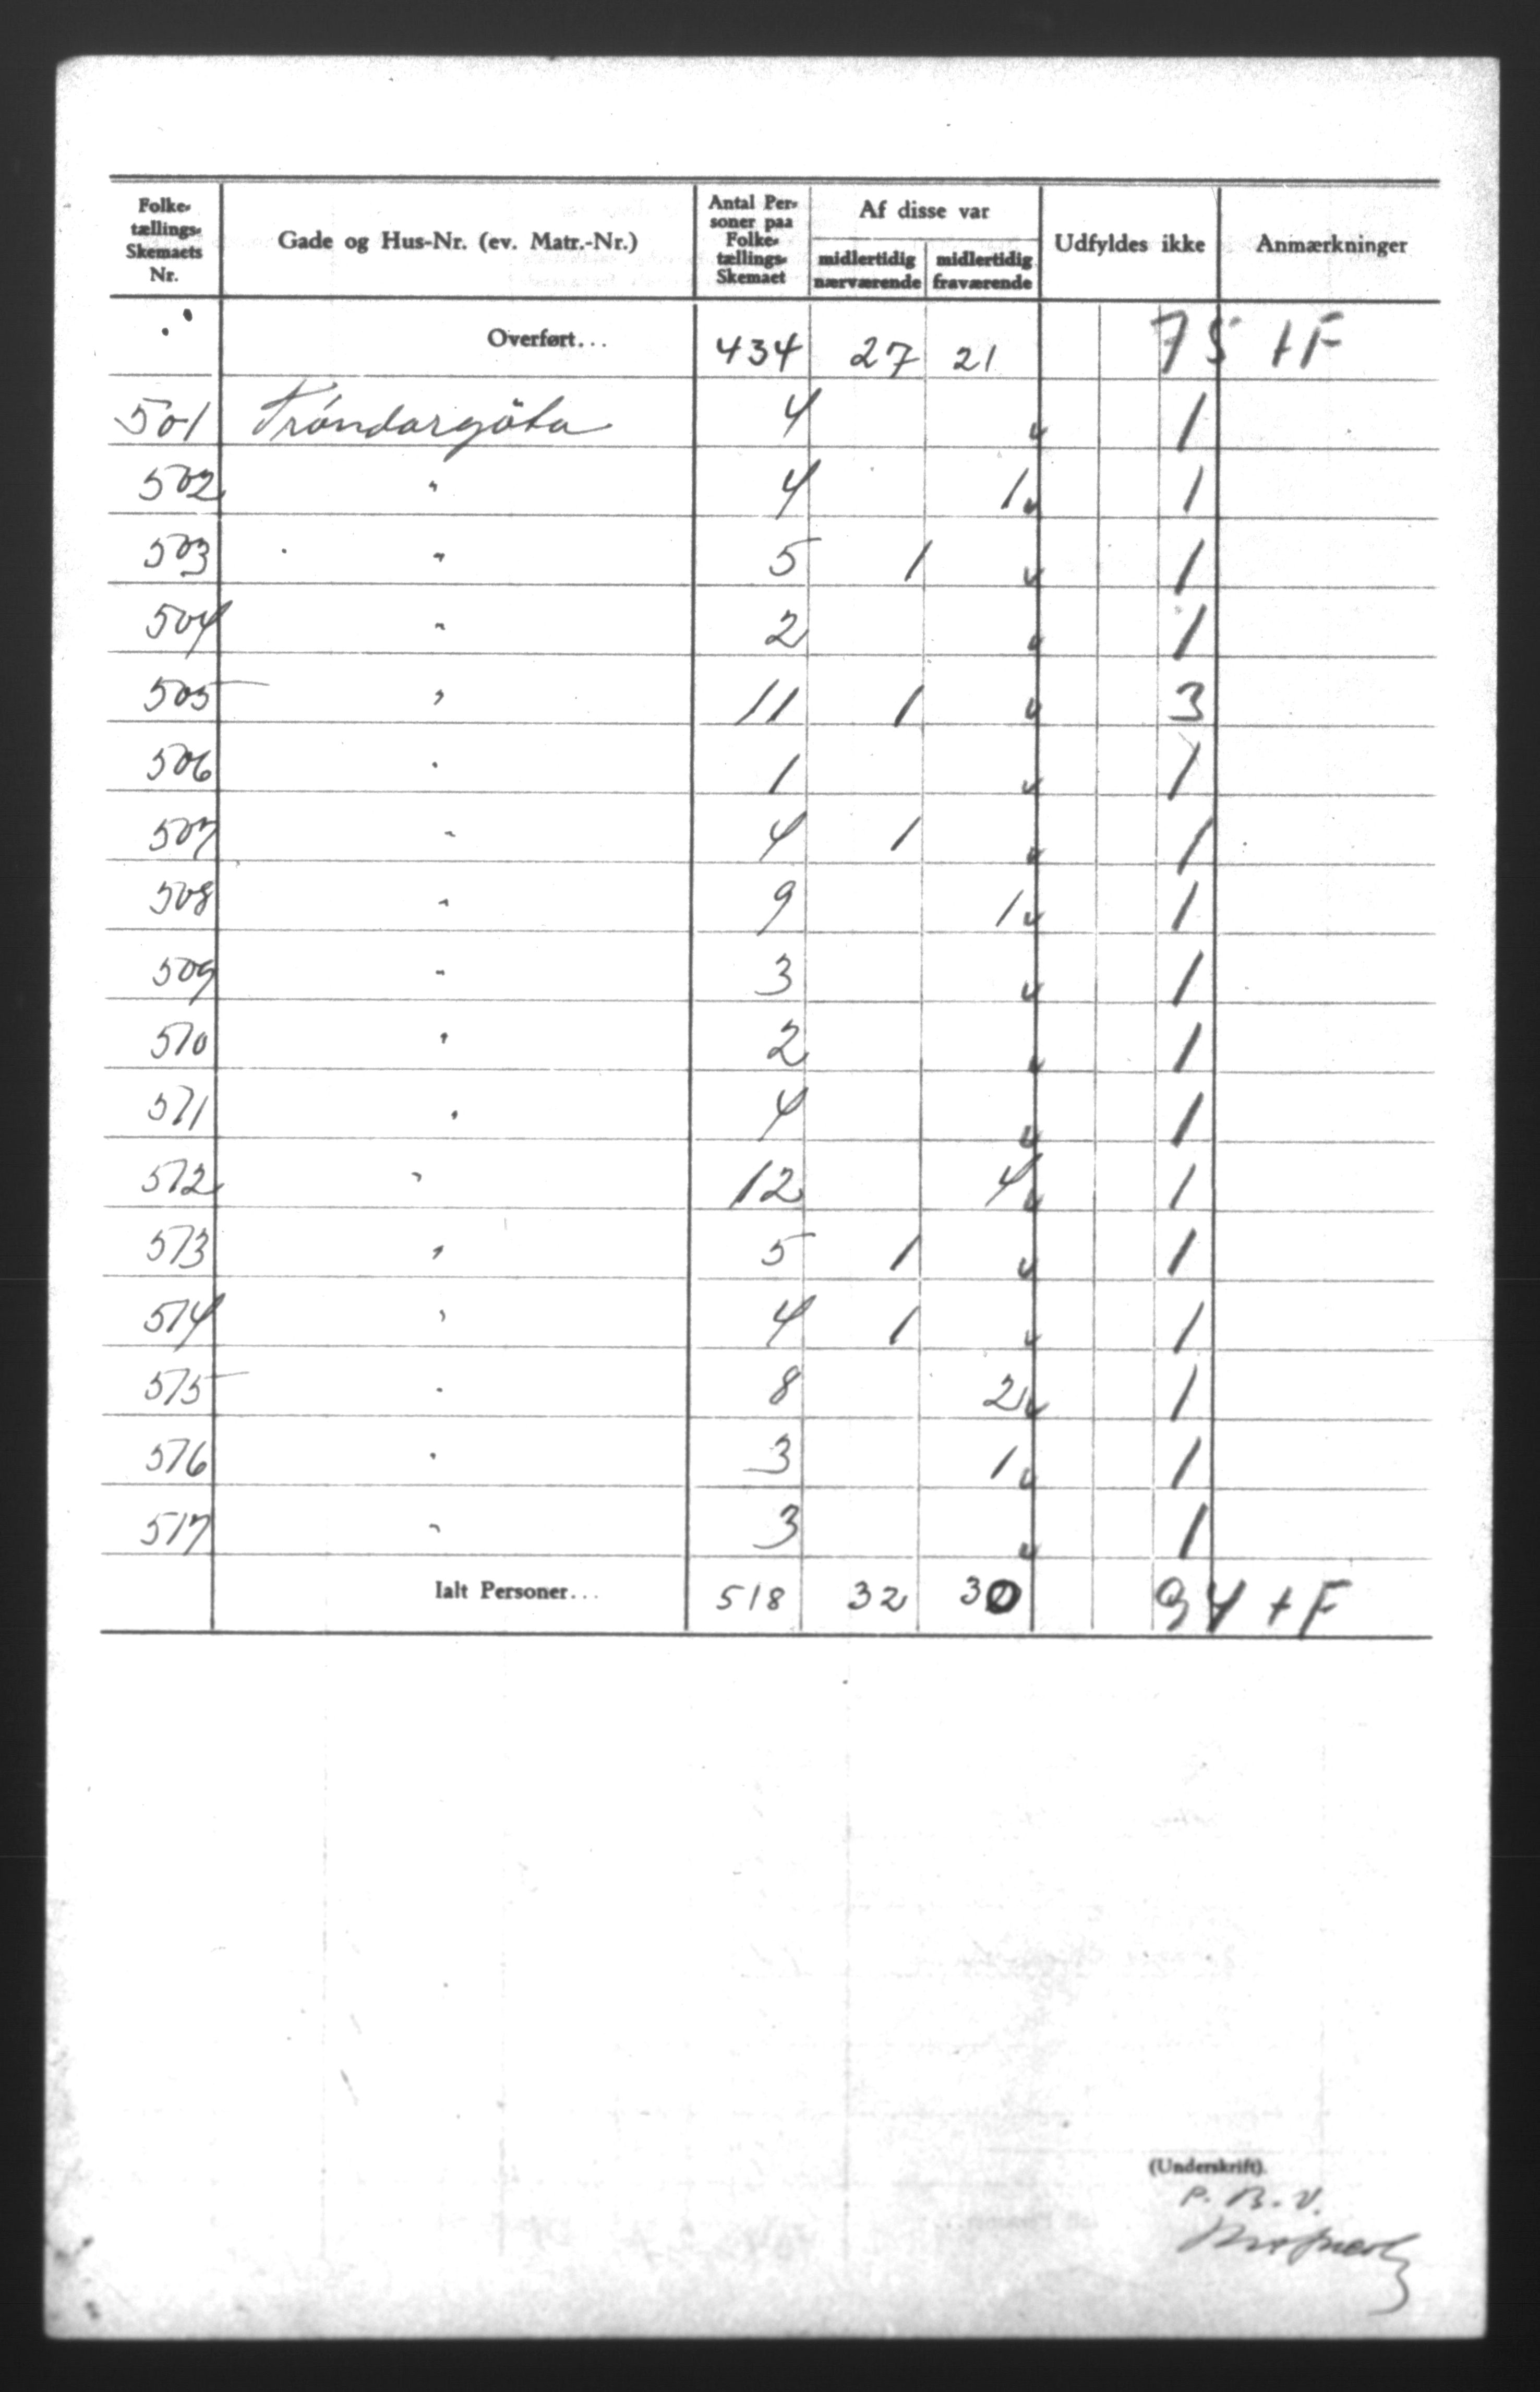 Folke-tællings-Skemaets Nr. Gade og Hus-Nr. (ev. Matr.-Nr.) Antal Personer paa Folke-tællings-Skemaet Af disse var midlertidig nærværende midlertidig fraværende Udfyldes ikke Anmærkninger
Overført... 434 27 21 75 + F
501 Tróndargöta 4 v 1
502 " 4 1 v 1
503 " 5 1 v 1
504 " 2 v 1
505 " 11 1 v 3
506 " 1 v 1
507 " 4 1 v 1
508 " 9 1 v 1
509 " 3 v 1
510 " 2 v 1
511 " 4 v 1
512 " 12 4 v 1
513 " 5 1 v 1
514 " 4 1 v 1
515 " 8 2 v 1
516 " 3 1 v 1
517 " 3 v 1
Ialt Personer... 518 32 30 94 + F
(Underskrift).
P. B. V.